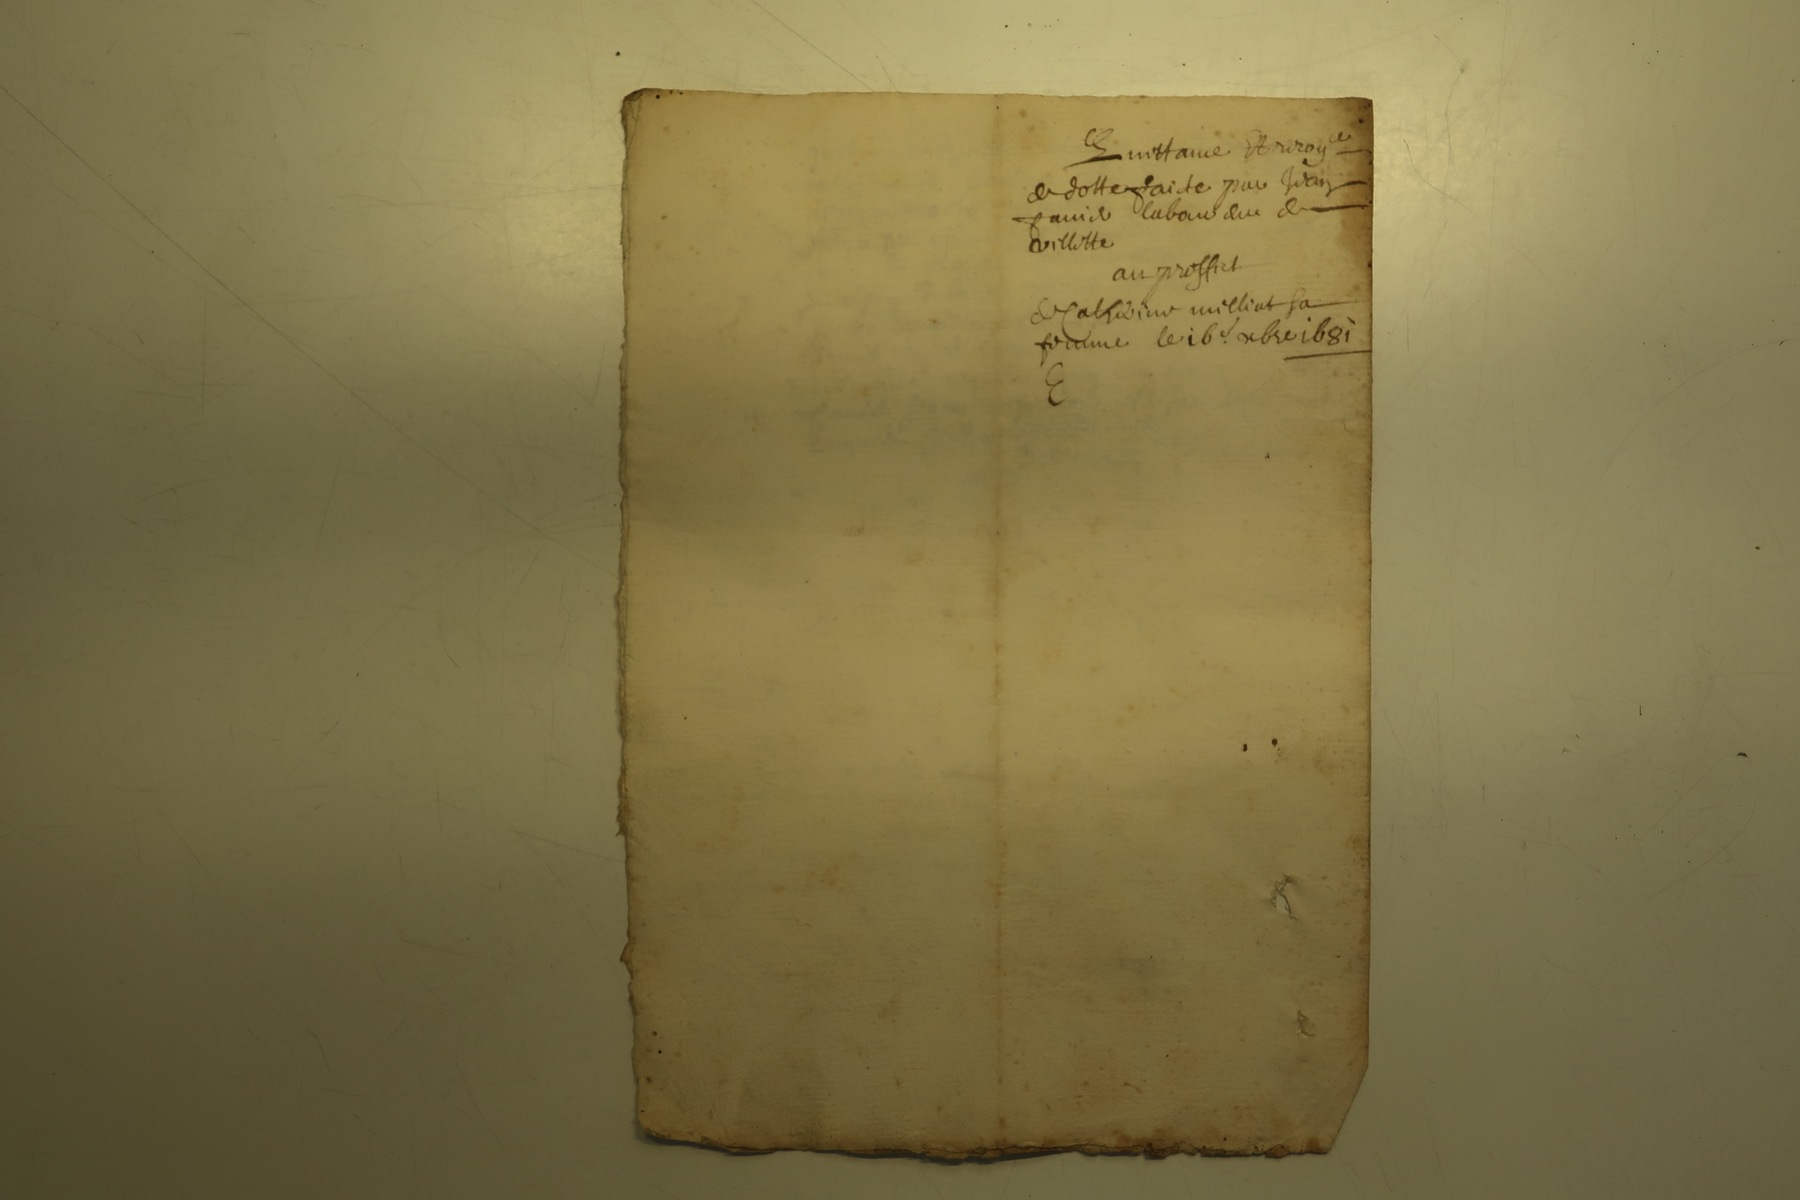 Quittance & recoy^ce
de dotte faicte par Jean
laboureur de
villette
au proffict
de Catherine milliat sa
femme le 16^e xbre 1681